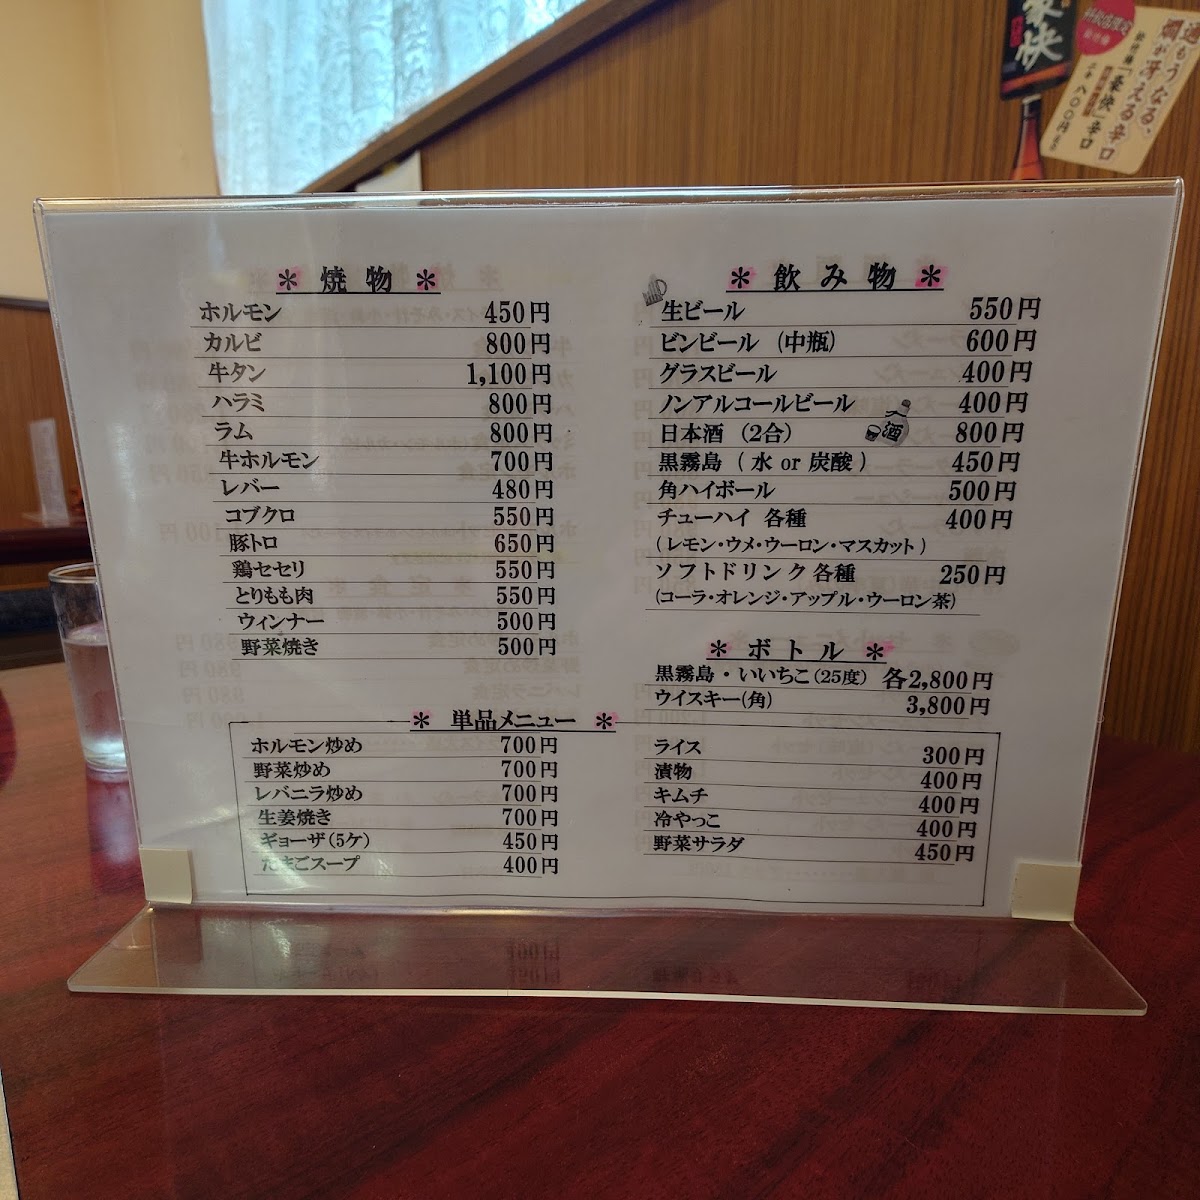 豪快
通もうなる、
燗が冴える辛口
「豪快」辛口
＊ 焼物 ＊
ホルモン 450円
カルビ 800円
牛タン 1,100円
ハラミ 800円
ラム 800円
牛ホルモン 700円
レバー 480円
コブクロ 550円
豚トロ 650円
鶏セセリ 550円
とりもも肉 550円
ウィンナー 500円
野菜焼き 500円
＊ 飲み物 ＊
生ビール 550円
ビンビール (中瓶) 600円
グラスビール 400円
ノンアルコールビール 400円
日本酒 (2合) 酒 800円
黒霧島 ( 水 or 炭酸 ) 450円
角ハイボール 500円
チューハイ 各種 400円
(レモン・ウメ・ウーロン・マスカット)
ソフトドリンク 各種 250円
(コーラ・オレンジ・アップル・ウーロン茶)
＊ ボトル ＊
黒霧島・いいちこ(25度) 各2,800円
ウイスキー(角) 3,800円
＊ 単品メニュー ＊
ホルモン炒め 700円
野菜炒め 700円
レバニラ炒め 700円
生姜焼き 700円
ギョーザ(5ケ) 450円
たまごスープ 400円
ライス 300円
漬物 400円
キムチ 400円
冷やっこ 400円
野菜サラダ 450円